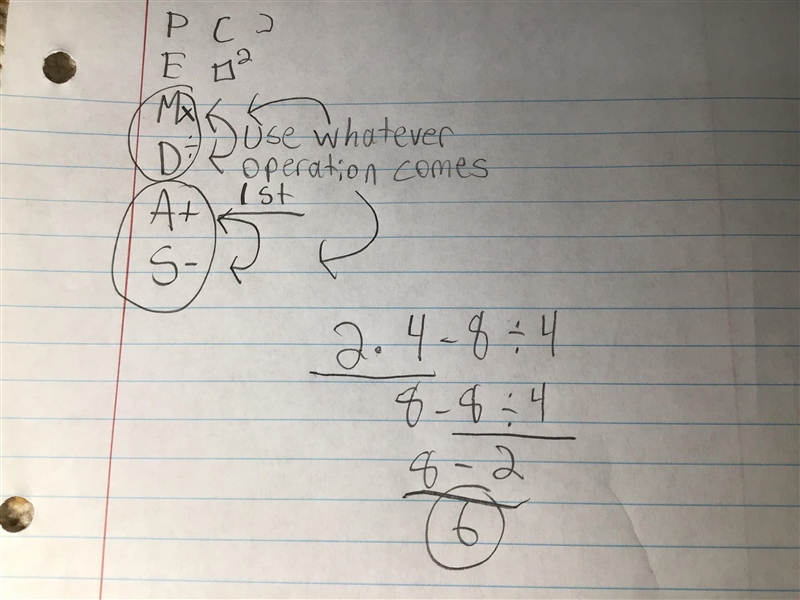 P ( )
E □²
Mx
Use whatever
D÷
operation comes
1st
A+
S-
2 · 4 - 8 ÷ 4
8 - 8 ÷ 4
8 - 2
6